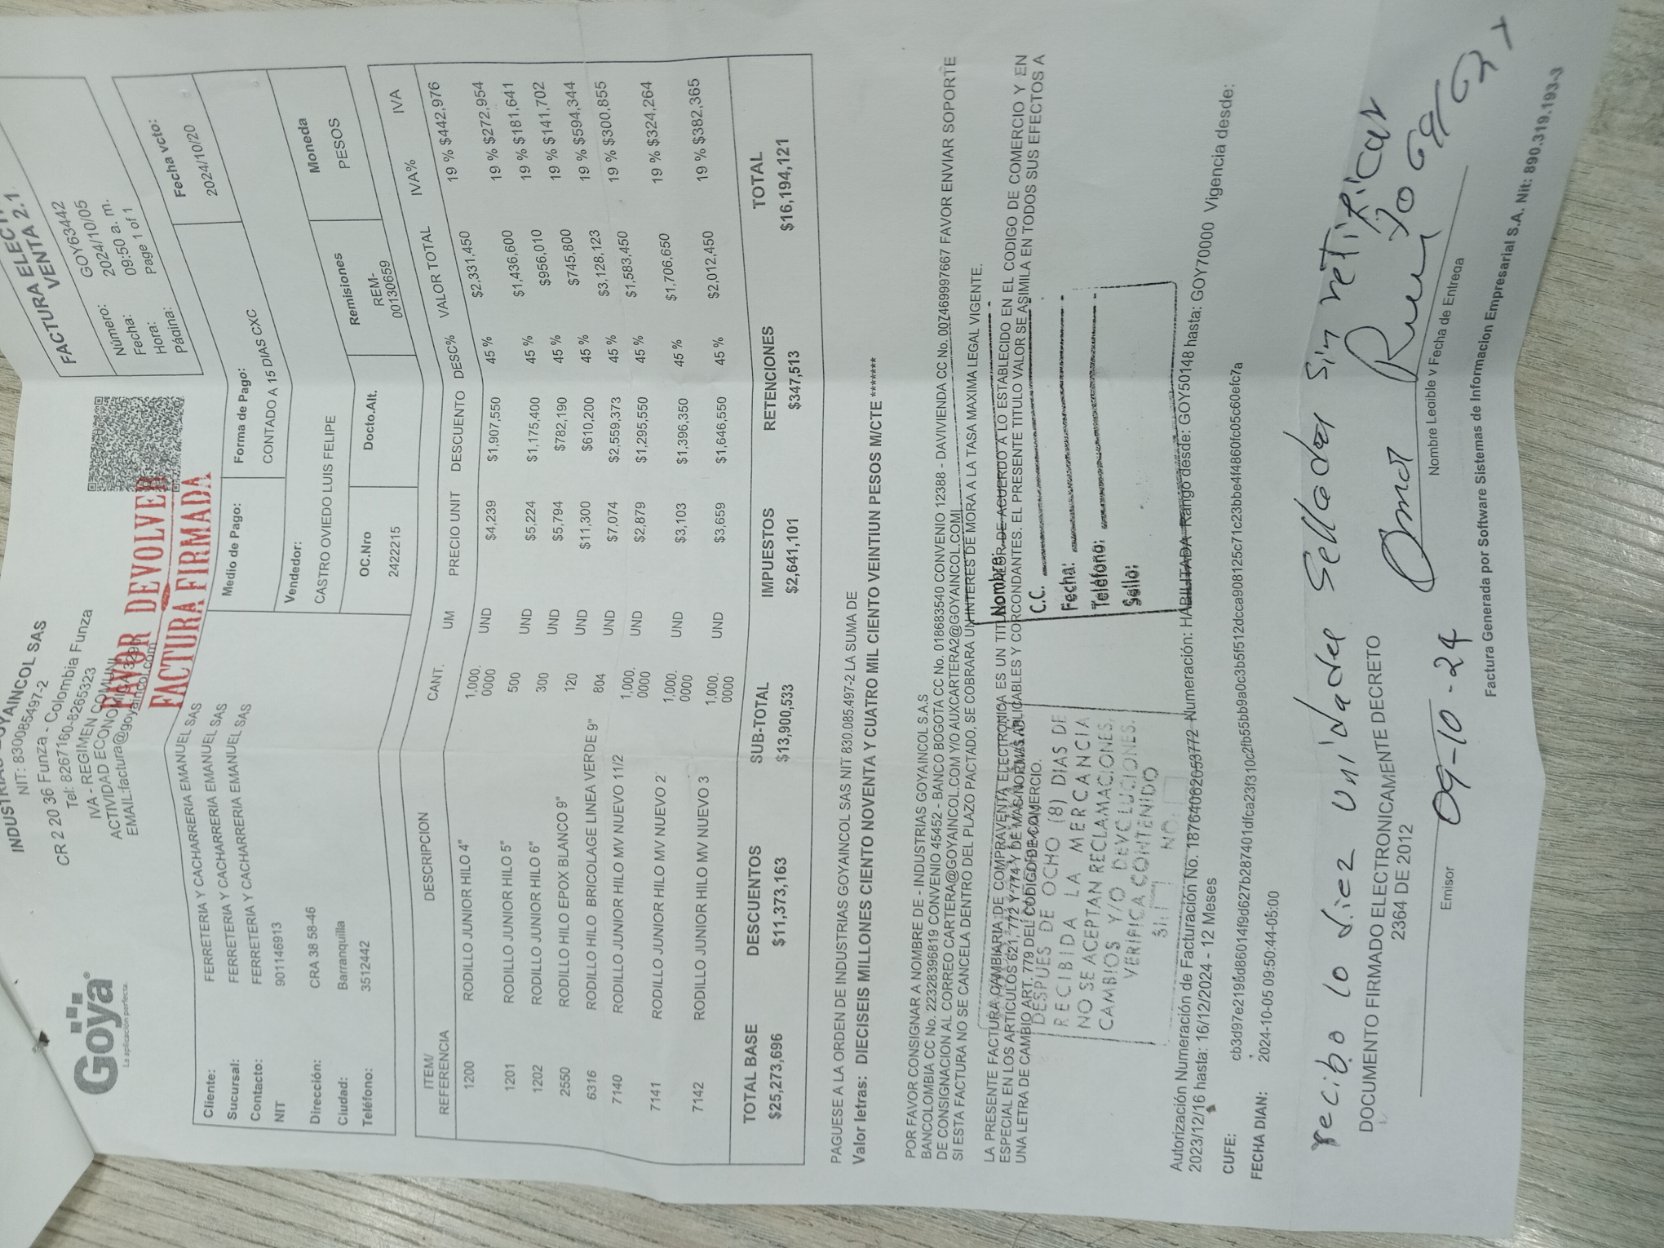 Goya
La aplicacion perfecta.
INDUSTRIAS GOYAINCOL SAS
NIT: 830085497-2
CR 2 20 36 Funza - Colombia Funza
Tel: 8267160-8265323
IVA - REGIMEN COMUN
ACTIVIDAD ECONOMICA
EMAIL:factura@goyaincol.com
FAVOR DEVOLVER
FACTURA FIRMADA
VENTA 2.1
Número: GOY63442
Fecha: 2024/10/05
Hora: 09:50 a. m.
Página: Page 1 of 1
Cliente: FERRETERIA Y CACHARRERIA EMANUEL SAS
Sucursal: FERRETERIA Y CACHARRERIA EMANUEL SAS
Contacto: FERRETERIA Y CACHARRERIA EMANUEL SAS
NIT 901146913
Dirección: CRA 38 58-46
Ciudad: Barranquilla
Teléfono: 3512442
Medio de Pago: Forma de Pago: Fecha vcto:
CONTADO A 15 DIAS CXC 2024/10/20
Vendedor: Moneda
CASTRO OVIEDO LUIS FELIPE PESOS
OC.Nro Docto.Alt. Remisiones
2422215 REM-
00130659
ITEM/
REFERENCIA DESCRIPCION CANT. UM PRECIO UNIT DESCUENTO DESC% VALOR TOTAL IVA% IVA
1200 RODILLO JUNIOR HILO 4" 1,000. UND $4,239 $1,907,550 45 % $2,331,450 19 % $442,976
0000
1201 RODILLO JUNIOR HILO 5" 500 UND $5,224 $1,175,400 45 % $1,436,600 19 % $272,954
1202 RODILLO JUNIOR HILO 6" 300 UND $5,794 $782,190 45 % $956,010 19 % $181,641
2550 RODILLO HILO EPOX BLANCO 9" 120 UND $11,300 $610,200 45 % $745,800 19 % $141,702
6316 RODILLO HILO BRICOLAGE LINEA VERDE 9" 804 UND $7,074 $2,559,373 45 % $3,128,123 19 % $594,344
7140 RODILLO JUNIOR HILO MV NUEVO 11/2 1,000. UND $2,879 $1,295,550 45 % $1,583,450 19 % $300,855
0000
7141 RODILLO JUNIOR HILO MV NUEVO 2 1,000. UND $3,103 $1,396,350 45 % $1,706,650 19 % $324,264
0000
7142 RODILLO JUNIOR HILO MV NUEVO 3 1,000. UND $3,659 $1,646,550 45 % $2,012,450 19 % $382,365
0000
TOTAL BASE DESCUENTOS SUB-TOTAL IMPUESTOS RETENCIONES TOTAL
$25,273,696 $11,373,163 $13,900,533 $2,641,101 $347,513 $16,194,121
PAGUESE A LA ORDEN DE INDUSTRIAS GOYAINCOL SAS NIT 830.085.497-2 LA SUMA DE
Valor letras: DIECISEIS MILLONES CIENTO NOVENTA Y CUATRO MIL CIENTO VEINTIUN PESOS M/CTE *******
POR FAVOR CONSIGNAR A NOMBRE DE - INDUSTRIAS GOYAINCOL S.A.S
BANCOLOMBIA CC No. 22328396819 CONVENIO 45452 - BANCO BOGOTA CC No. 018683540 CONVENIO 12388 - DAVIVIENDA CC No. 007469997667 FAVOR ENVIAR SOPORTE
DE CONSIGNACION AL CORREO CARTERA@GOYAINCOL.COM Y/O AUXCARTERA2@GOYAINCOL.COM
SI ESTA FACTURA NO SE CANCELA DENTRO DEL PLAZO PACTADO, SE COBRARA UN INTERES DE MORA A LA TASA MAXIMA LEGAL VIGENTE.
LA PRESENTE FACTURA CAMBIARIA DE COMPRAVENTA ELECTRONICA ES UN TITULO VALOR DE ACUERDO A LO ESTABLECIDO EN EL CODIGO DE COMERCIO Y EN
ESPECIAL EN LOS ARTICULOS 621, 772 Y 774 Y DE MAS NORMAS APLICABLES Y CORCONDANTES. EL PRESENTE TITULO VALOR SE ASIMILA EN TODOS SUS EFECTOS A
UNA LETRA DE CAMBIO ART. 779 DEL CODIGO DE COMERCIO.
DESPUES DE OCHO (8) DIAS DE
RECIBIDA LA MERCANCIA
NO SE ACEPTAN RECLAMACIONES,
CAMBIOS Y/O DEVOLUCIONES.
VERIFICA CONTENIDO
SI NO
Nombre:
C.C.
Fecha:
Teléfono:
Sello:
Autorización Numeración de Facturación No. 18764062053772 Numeración: HABILITADA Rango desde: GOY50148 hasta: GOY70000 Vigencia desde:
2023/12/16 hasta: 16/12/2024 - 12 Meses
CUFE:
FECHA DIAN: 2024-10-05 09:50:44-05:00
recibo lo diez unidades Selladas sin retificar
DOCUMENTO FIRMADO ELECTRONICAMENTE DECRETO
2364 DE 2012
Omar
09-10-24
Emisor Nombre Legible y Fecha de Entrega
Factura Generada por Software Sistemas de Informacion Empresarial S.A. Nit: 890.319.193-3